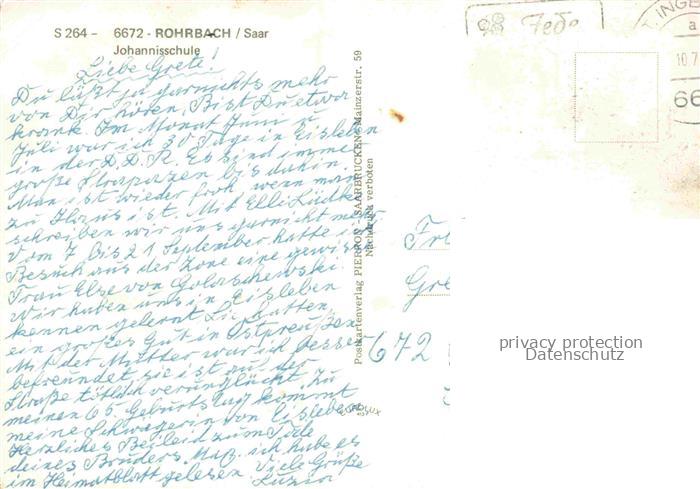 S 264 - 6672 - ROHRBACH / Saar
Johannisschule
Liebe Grete!
Du läßt ja garnichts mehr
von Dir hören. Bist Du etwa
krank. Im Monat Juni u
Juli war ich 30 Tage in Eisleben
in der D.D.R. Es sind immer
große Strapazen bis dahin.
Man ist wieder froh wenn man
zu Haus ist. Mit Elli Lüdke
schreiben wir uns garnicht mehr
Vom 7 bis 21 September hatte ich
Besuch aus der Zone eine gewisse
Frau Else von
Wir haben uns in Eisleben
kennen gelernt Sie hatten
ein großes Gut in Ostpreußen
Mit der Mutter war ich besser
befreundet sie ist auf der
Straße tötlich verunglückt. Zu
meinen 65. Geburtstag kommt
meine Schwägerin von Eisleben
Herzliches Beileid zum Tode
deines Bruders. ich habe es
im Heimatblatt gelesen Viele Grüße
Luzia
Postkartenverlag PIERRON - SAARBRÜCKEN, Mainzerstr. 59
Nachdruck verboten
INGB
a
10.7
66
Gre
672
privacy protection
Datenschutz